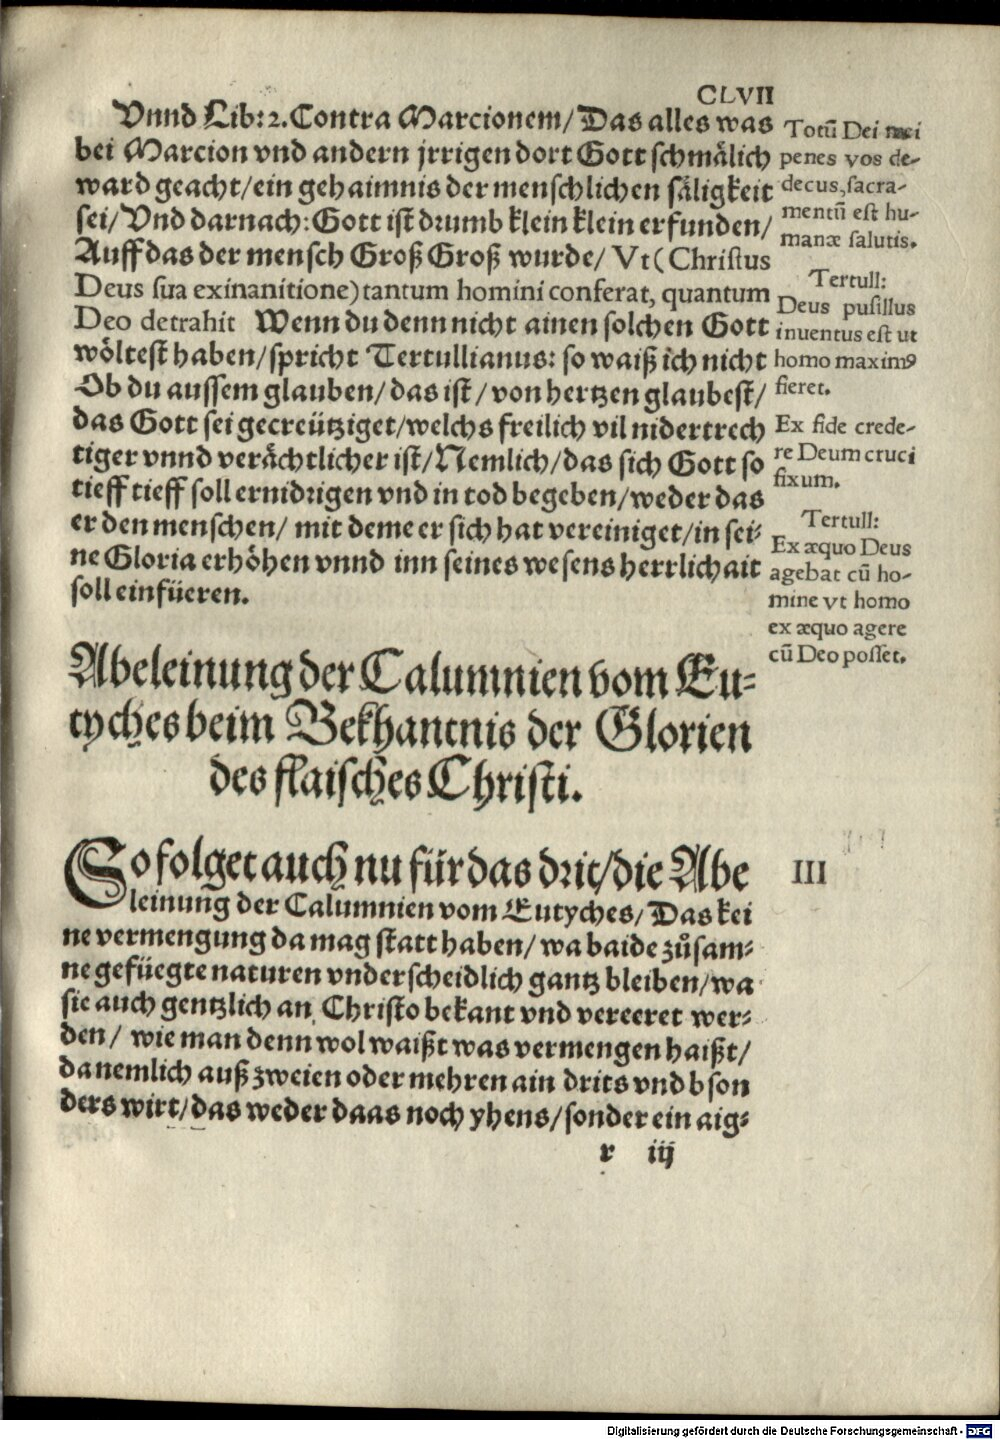 CLVII
Vnnd Lib: 2. Contra Marcionem/ Das alles was
bei Marcion vnd andern jrrigen dort Gott schmälich
ward geacht/ ein gehaimnis der menschlichen säligkeit
sei/ Vnd darnach: Gott ist drumb klein klein erfunden/
Auff das der mensch Groß Groß wurde/ Vt (Christus
Deus sua exinanitione) tantum homini conferat, quantum
Deo detrahit Wenn du denn nicht ainen solchen Gott
wöltest haben/ spricht Tertullianus: so waiß ich nicht
Ob du aussem glauben/ das ist/ von hertzen glaubest/
das Gott sei gecreütziget/ welchs freilich vil nidertrech
tiger vnnd verächtlicher ist/ Nemlich/ das sich Gott so
tieff tieff soll ernidrigen vnd in tod begeben/ weder das
er den menschen/ mit deme er sich hat vereiniget/ in sei-
ne Gloria erhöhen vnnd inn seines wesens herrlichait
soll einfüeren.
Totū Dei
penes vos de-
decus, sacra-
mentū est hu-
manæ salutis.
Tertull:
Deus pusillus
inventus est ut
homo maximꝰ
fieret.
Ex fide crede-
re Deum cruci
fixum.
Tertull:
Ex æquo Deus
agebat cū ho-
mine vt homo
ex æquo agere
cū Deo posset.
Abeleinung der Calumnien vom Eu-
tyches beim Bekhantnis der Glorien
des flaisches Christi.
So folget auch nu für das drit/ die Abe
III
leinung der Calumnien vom Eutyches/ Das kei
ne vermengung da mag statt haben/ wa baide zůsam-
ne gefüegte naturen vnderscheidlich gantz bleiben/ wa
sie auch gentzlich an Christo bekant vnd vereeret wer-
den/ wie man denn wol waißt was vermengen haißt/
da nemlich auß zweien oder mehren ain drits vnd bson
ders wirt/ das weder daas noch yhens/ sonder ein aig-
r iij
Digitalisierung gefördert durch die Deutsche Forschungsgemeinschaft - DFG